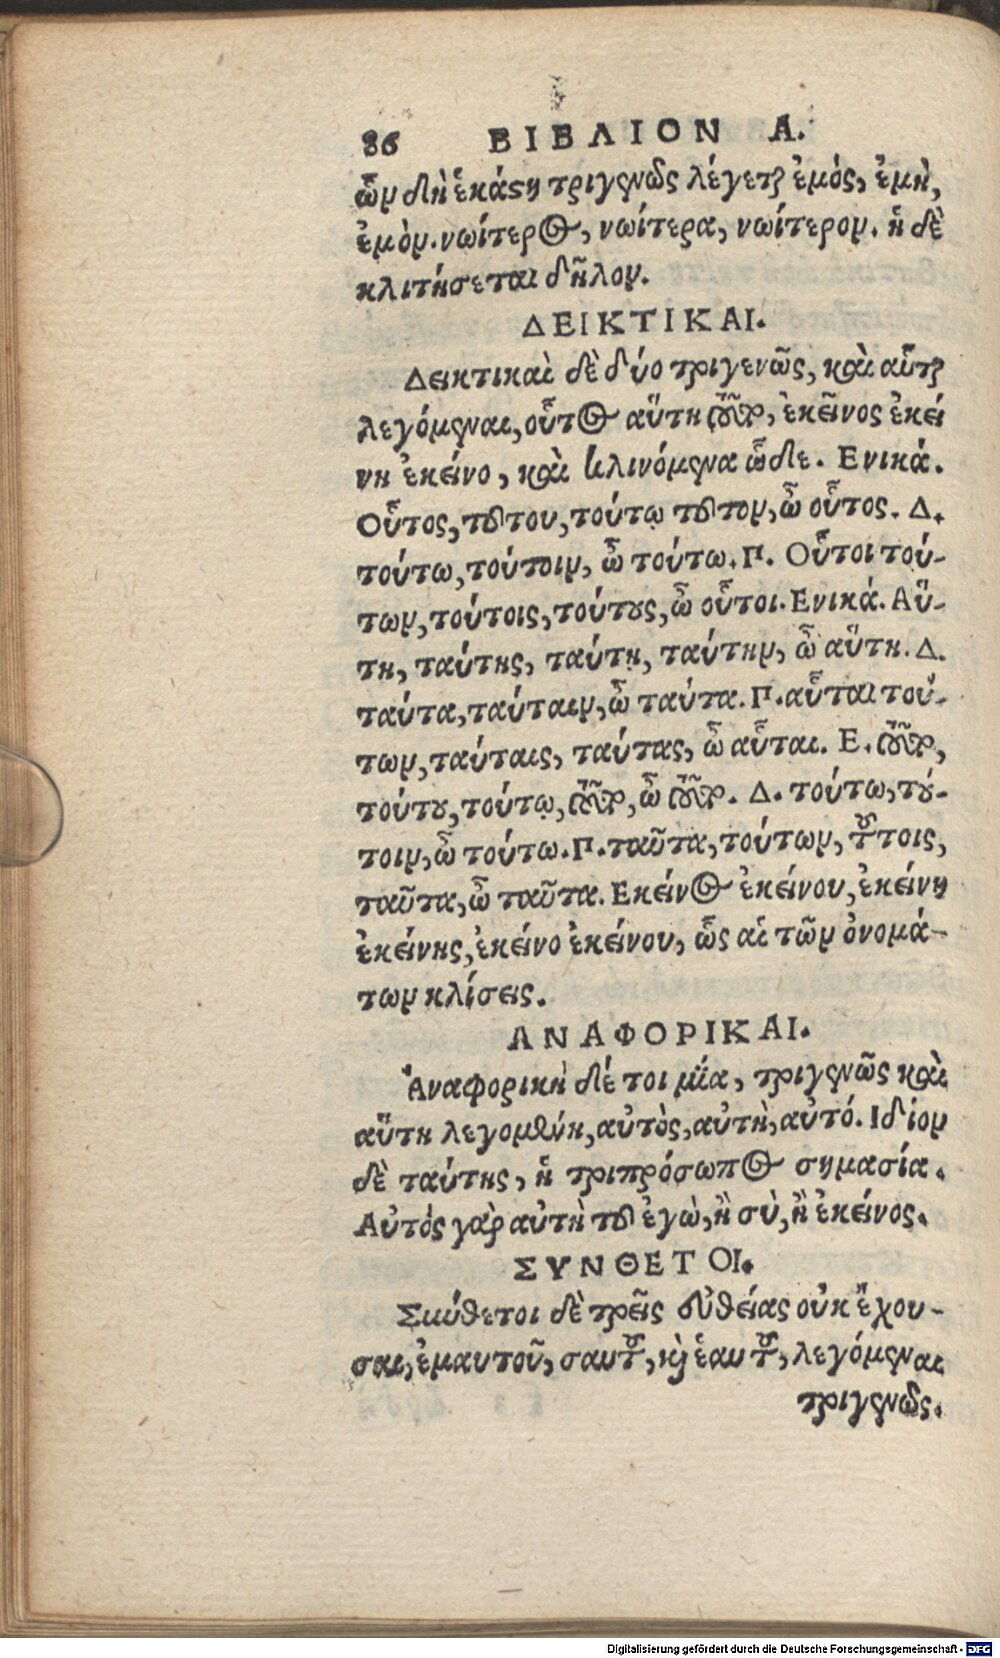 86 ΒΙΒΛΙΟΝ Α.
ὧν δὴ ἑκάστη τριγενῶς λέγεται ἐμός, ἐμὴ,
ἐμὸν. νωίτερος, νωίτερα, νωίτερον. ἡ δὲ
κλιτήσεται δῆλον.
ΔΕΙΚΤΙΚΑΙ.
Δεικτικαὶ δὲ δύο τριγενῶς, καὶ αὗται
λεγόμεναι, οὗτος αὕτη τοῦτο, ἐκεῖνος ἐκεί
νη ἐκείνο, καὶ κλινόμενα ὧδε. Ενικά.
Οὗτος, τούτου, τούτῳ τοῦτον, ὦ οὗτος. Δ.
τούτω, τούτοιν, ὦ τούτω. Π. Οὗτοι τού-
των, τούτοις, τούτους, ὦ οὗτοι. Ενικά. Αὕ-
τη, ταύτης, ταύτῃ, ταύτην, ὦ αὕτη. Δ.
ταύτα, ταύταιν, ὦ ταύτα. Π. αὗται τού-
των, ταύταις, ταύτας, ὦ αὗται. Ε. τοῦτο,
τούτου, τούτῳ, τοῦτο, ὦ τοῦτο. Δ. τούτω, τού-
τοιν, ὦ τούτω. Π. ταῦτα, τούτων, τούτοις,
ταῦτα, ὦ ταῦτα. Εκείνος ἐκείνου, ἐκείνη
ἐκείνης, ἐκείνο ἐκείνου, ὡς αἱ τῶν ὀνομά-
των κλίσεις.
ΑΝΑΦΟΡΙΚΑΙ.
Ἀναφορικὴ δέ τοι μία, τριγενῶς καὶ
αὕτη λεγομένη, αὐτὸς, αὐτὴ, αὐτό. Ιδίον
δὲ ταύτης, ἡ τριπρόσωπος σημασία.
Αὐτός γὰρ αὐτὴ τοῦ ἐγὼ, ἢ σὺ, ἢ ἐκείνος.
ΣΥΝΘΕΤΟΙ.
Σύνθετοι δὲ τρεῖς εὐθείας οὐκ ἔχου-
σαι, ἐμαυτοῦ, σαυτοῦ, καὶ ἑαυτοῦ, λεγόμεναι
τριγενῶς.
Digitalisierung gefördert durch die Deutsche Forschungsgemeinschaft - DFG